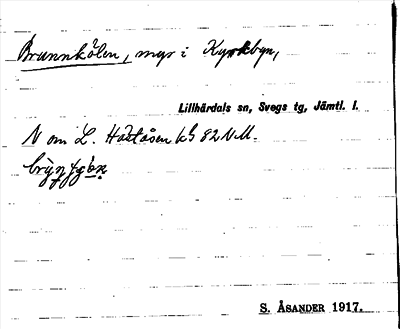 Brunnkölen, myr i Kyrkbyn,
Lillhärdals sn, Svegs tg, Jämtl. l.
N om L. Håståsen kb 82 N.M.
S. ÅSANDER 1917.